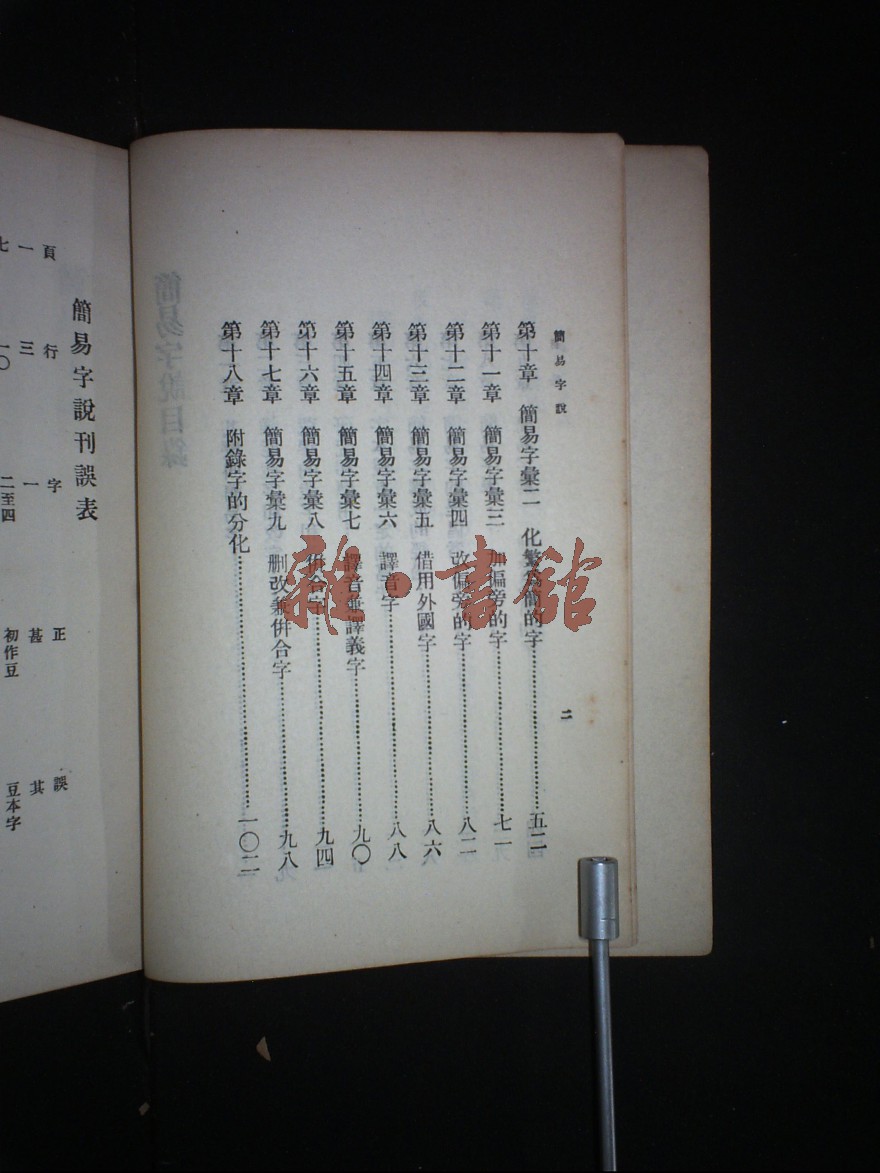 簡易字說
二
第十章　簡易字彙二　化繁為簡的字……五二
第十一章　簡易字彙三　加偏旁的字……七一
第十二章　簡易字彙四　改偏旁的字……八二
第十三章　簡易字彙五　借用外國字……八六
第十四章　簡易字彙六　譯音字……八八
第十五章　簡易字彙七　譯音兼譯義字……九〇
第十六章　簡易字彙八　併合字……九四
第十七章　簡易字彙九　刪改兼併合字……九八
第十八章　附錄字的分化……一〇二
簡易字說刊誤表
頁　行　字　正　誤
一　三　一　甚　其
七　一〇　二至四　初作豆　豆本字
雜·書館